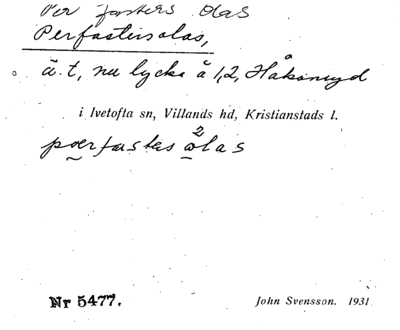 Per fasters olas
Perfastersolas,
ä. t, nu lycka å 1,2, Håkanryd
i Ivetofta sn, Villands hd, Kristianstads l.
pærfastəs ²olas
Nr 5477.
John Svensson. 1931